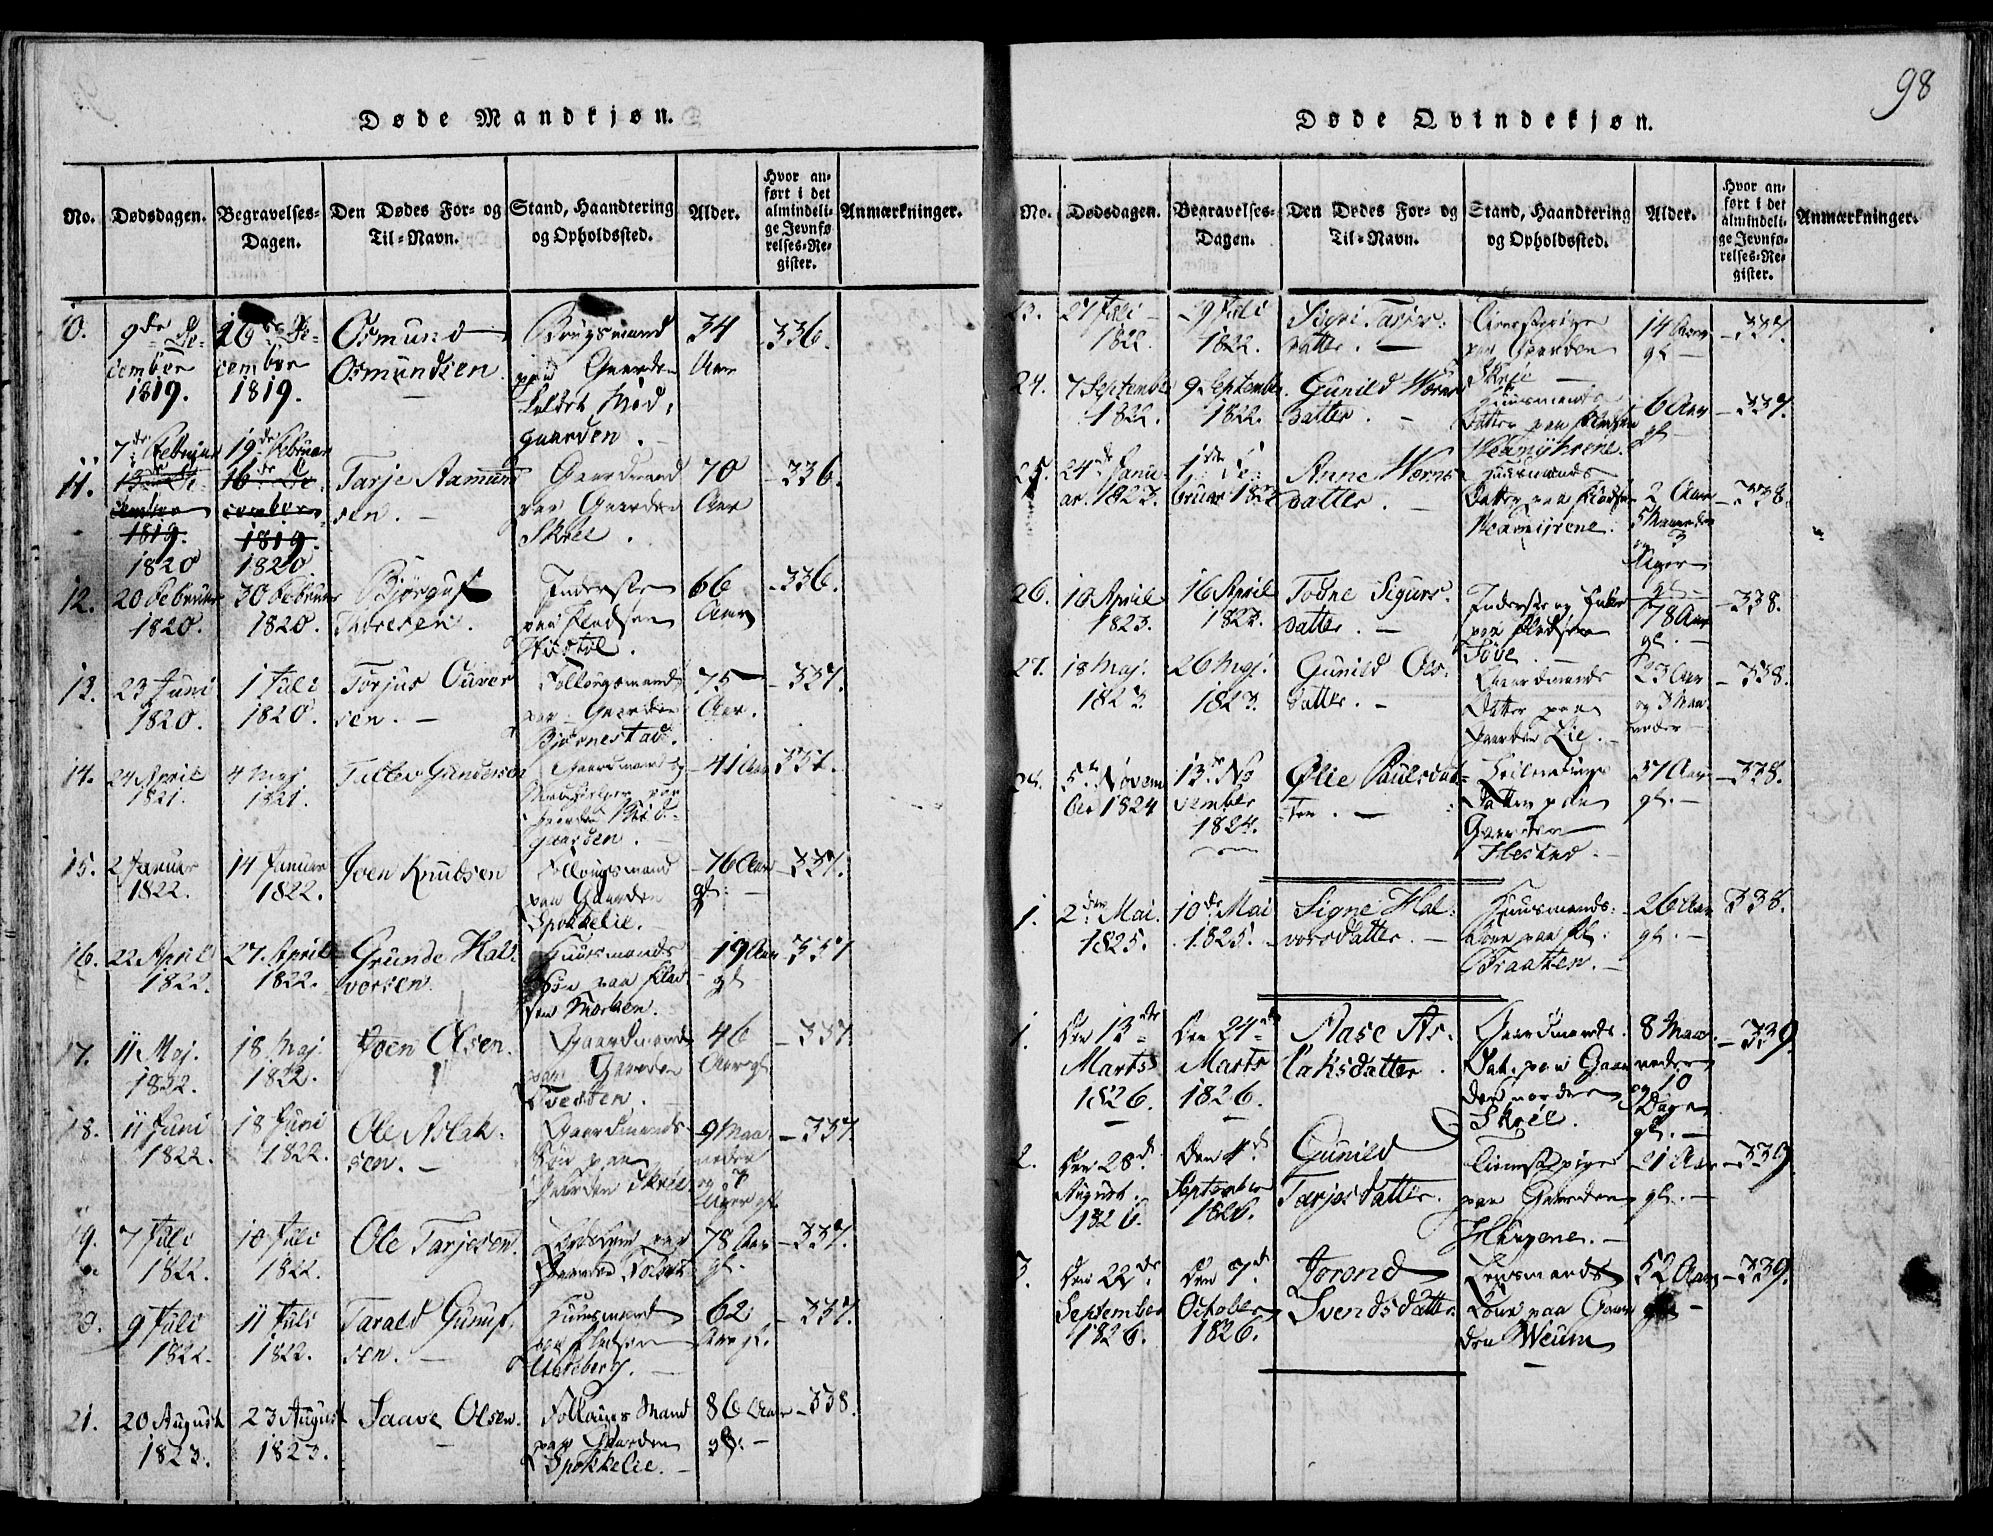 98
Døde Mandkjøn.
No.
Dødsdagen.
Begravelses-
Dagen.
Den Dødes For- og
Til-Navn.
Stand, Haandtering
og Opholdssted.
Alder.
Hvor an-
ført i det
almindeli-
ge Jevnfø-
relses-Re-
gister.
Anmærkninger.
10.
9de De-
cember
1819.
16de De-
cember
1819.
Osmund
Osmundsen.
Brugsmand
paa Gaarden
Mid-
gaarden.
34
Aar
336.
11.
7de Februar
1820
19de Februar
1820
Tarje Aamund
sen.
Gaardmand
paa Gaarden
Skree.
70
Aar
336.
12.
20 Februar
1820.
30 Februar
1820.
Bjørguf
Thoresen.
Inderste
paa Pladsen
66
Aar
336.
13.
23 Juni
1820.
1 Juli
1820.
Torjus Ouver
sen.
Follougsmand
paa Gaarden
Bjørnestad.
75
Aar.
337.
14.
24 April
1821.
4 Maj
1821.
Tellev Gunderson
Gaardmand og
paa
Gaarden Mid-
gaarden.
41 Aar
337.
15.
2 Januar
1822.
14 Januar
1822.
Joen Knudsen
Follougsmand
paa Gaarden
Spokkelie.
76 Aar
gl.
337.
16.
22 April
1822.
27 April
1822.
Grunde Hal-
vorsen.
Huusmands
Søn paa Plad-
sen Morken.
19 Aar
gl.
337
17.
11 Maj.
1822.
18 Maj.
1822.
Joen Olsen.
Gaardmand
paa Gaarden
Tvedten.
46
Aar gl.
337
18.
11 Juni
1822.
18 Juni
1822.
Ole Aslak-
sen.
Gaardmands
Søn paa
Gaarden Skree
9 Maa-
neder
og
Uger gl.
337.
19.
7 Juli
1822.
10 Juli
1822.
Ole Tarjesen.
paa
Gaarden
78 Aar
gl.
337.
20.
9 Juli
1822.
11 Juli
1822.
Tarald Gunuf-
sen.
Huusmand
paa Pladsen
62
Aar gl.
337.
21.
20 August
1823.
23 August
1823.
Saave Olsen.
Follougs Mand
paa Gaarden
Spokkelie.
86 Aar
gl.
338.
Døde Qvindekjøn.
No.
Dødsdagen.
Begravelses-
Dagen.
Den Dødes For- og
Til-Navn.
Stand, Haandtering
og Opholdssted.
Alder.
Hvor an-
ført i det
almindeli-
ge Jevnfø-
relses-Re-
gister.
Anmærkninger.
23.
27 Juli
1822.
29 Juli
1822.
Sigri Tarjes-
datter.
Tienestepige
paa Gaarden
Skrie
14 Aar
gl.
337.
24.
7 September
1822.
9 September
1822.
Gunild Werns
datter.
Huusmands
Datter paa Pladsen
6 Aar
gl.
337.
25.
24de Janu-
ar. 1823.
1ste Fe-
bruar 1823
Anne Werns
datter.
Huusmands
Datter paa Pladsen
2 Aar
5 Maaneder
og 3
Uger
gl.
338.
26.
10 April
1823.
16 April
1823.
Todne Sigurs-
datter.
Inderste og Enke
paa Pladsen
Tove.
78 Aar
gl.
338.
27.
18 Maj.
1823.
26 Maj.
1823.
Gunild Ols-
datter.
Gaardmands
Datter paa
Gaarden Lie.
23 Aar
og 3 Maa-
neder
338.
28.
5te Novem
ber 1824
13de No
vember
1824.
Ølie Paulsdat-
ter.
Datter paa
Gaarden
Hestad.
37 Aar
gl.
338.
1.
2den Mai.
1825.
10de Mai
1825.
Signe Hal-
vorsdatter.
Huusmands-
Kone paa Pl.
Braatten.
26 Aar
gl.
338.
1.
Den 13de
Marts
1826.
Den 24de
Marts
1826.
Aase As-
laksdatter.
Gaardmands-
Dat. paa Gaar
den nordre
Skrée.
8 Maa-
neder
og 10
Dage
gl.
339.
2.
Den 28de
August
1826.
Den 4de
September
1826.
Gunild
Tarjesdatter.
Tienestepige
paa Gaarden
21 Aar
gl.
339.
3.
Den 22de
September
1826.
Den 7de
October
1826.
Jorond
Svendsdatter
Lensmands
Kone paa Gaar
den Weum
52 Aar
339.